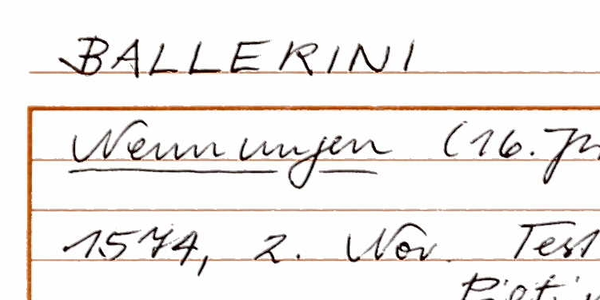 BALLERINI
Nennungen (16. Jh
1574, 2. Nov. Test